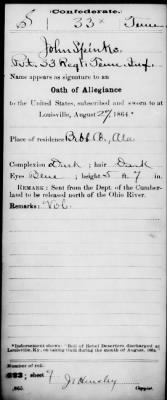 Confederate.
S 33 Tenn
John Spinks
Pvt. 33 Regt. Tenn. Inf.
Name appears as signature to an
Oath of Allegiance
to the United States, subscribed and sworn to at
Louisville, August 27, 1864.*
Place of residence Bibb Co., Ala
Complexion Dark; hair Dark
Eyes Blue; height 5 ft. 7 in.
REMARK: Sent from the Dept. of the Cumber-
land to be released north of the Ohio River.
Remarks: Vol.
*Indorsement shows: "Roll of Rebel Deserters discharged at
Louisville, Ky. on taking Oath during the month of August, 1864."
Number of roll:
sheet 9
Copyist.